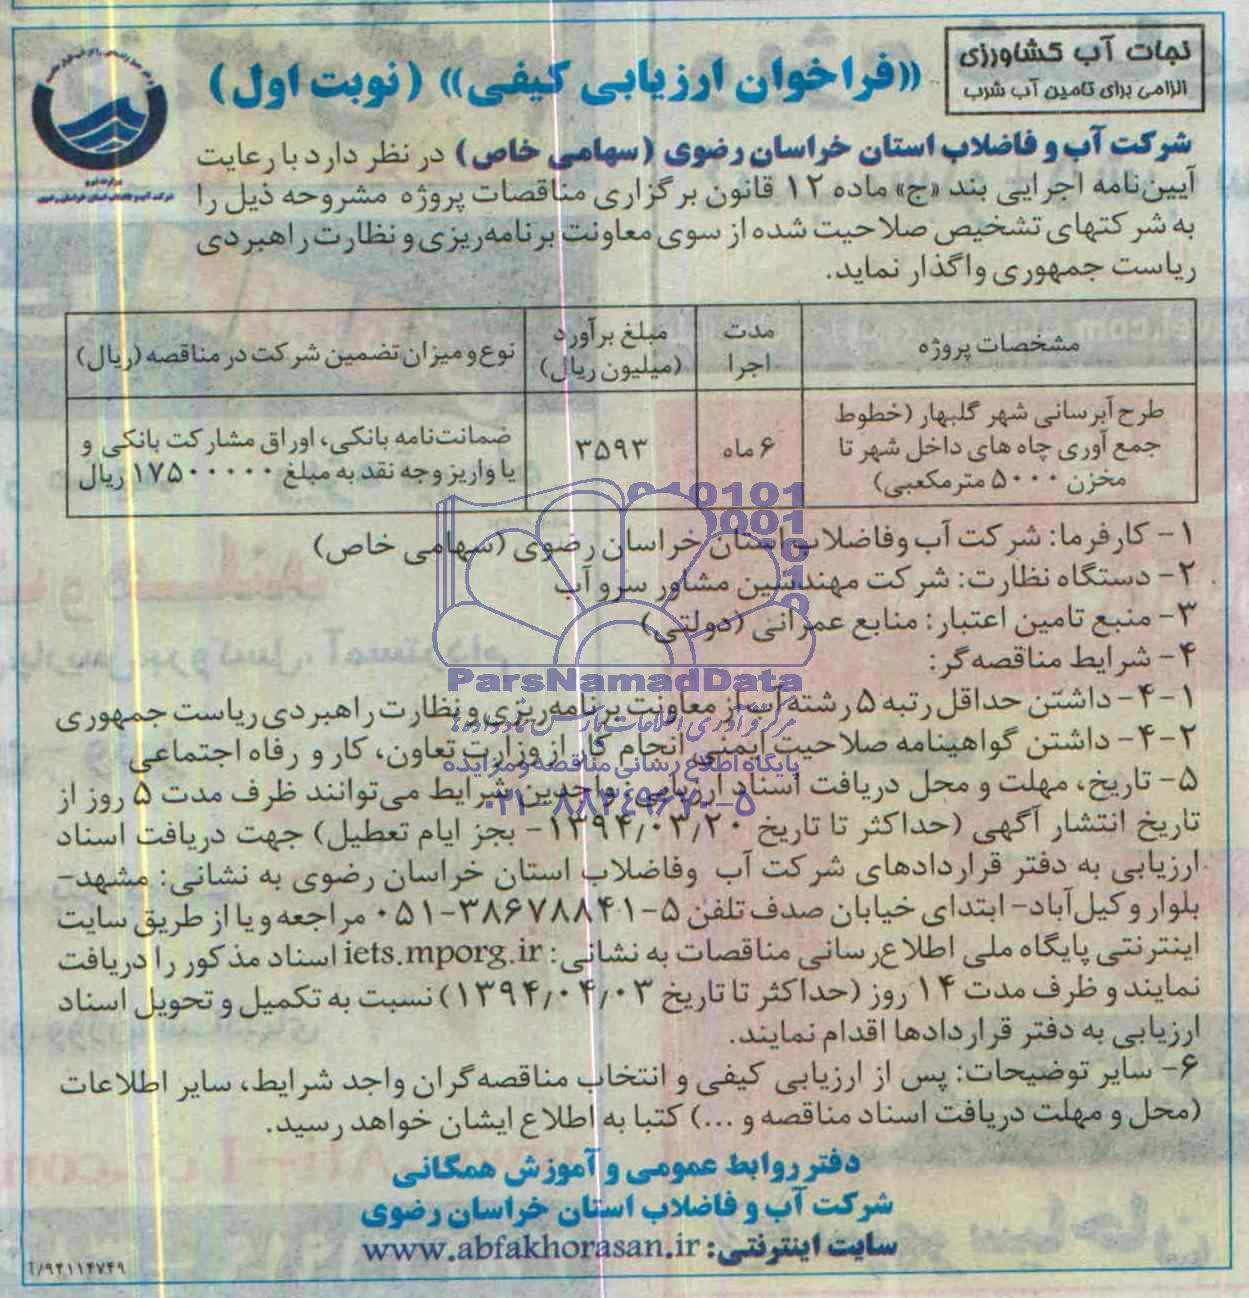 نجات آب کشاورزی
الزامی برای تامین آب شرب
«فراخوان ارزیابی کیفی» (نوبت اول)
شرکت آب و فاضلاب استان خراسان رضوی (سهامی خاص) در نظر دارد با رعایت
آیین‌نامه اجرایی بند «ج» ماده ۱۲ قانون برگزاری مناقصات پروژه مشروحه ذیل را
به شرکتهای تشخیص صلاحیت شده از سوی معاونت برنامه‌ریزی و نظارت راهبردی
ریاست جمهوری واگذار نماید.
مشخصات پروژه
مدت اجرا
مبلغ برآورد (میلیون ریال)
نوع و میزان تضمین شرکت در مناقصه (ریال)
طرح آبرسانی شهر گلبهار (خطوط
جمع آوری چاه های داخل شهر تا
مخزن ۵۰۰۰ مترمکعبی)
۶ ماه
۳۵۹۳
ضمانت‌نامه بانکی، اوراق مشارکت بانکی و
یا واریز وجه نقد به مبلغ ۱۷۵۰۰۰۰۰۰ ریال
۱- کارفرما: شرکت آب وفاضلاب استان خراسان رضوی (سهامی خاص)
۲- دستگاه نظارت: شرکت مهندسین مشاور سرو آب
۳- منبع تامین اعتبار: منابع عمرانی (دولتی)
۴- شرایط مناقصه‌گر:
۴-۱- داشتن حداقل رتبه ۵ رشته آب از معاونت برنامه‌ریزی و نظارت راهبردی ریاست جمهوری
۴-۲- داشتن گواهینامه صلاحیت ایمنی انجام کار از وزارت تعاون، کار و رفاه اجتماعی
۵- تاریخ، مهلت و محل دریافت اسناد ارزیابی: واجدین شرایط می‌توانند ظرف مدت ۵ روز از
تاریخ انتشار آگهی (حداکثر تا تاریخ ۱۳۹۴/۰۳/۲۰- بجز ایام تعطیل) جهت دریافت اسناد
ارزیابی به دفتر قراردادهای شرکت آب وفاضلاب استان خراسان رضوی به نشانی: مشهد-
بلوار وکیل‌آباد- ابتدای خیابان صدف تلفن ۵-۳۸۶۷۸۸۴۱-۰۵۱ مراجعه و یا از طریق سایت
اینترنتی پایگاه ملی اطلاع‌رسانی مناقصات به نشانی: iets.mporg.ir اسناد مذکور را دریافت
نمایند و ظرف مدت ۱۴ روز (حداکثر تا تاریخ ۱۳۹۴/۰۴/۰۳) نسبت به تکمیل و تحویل اسناد
ارزیابی به دفتر قراردادها اقدام نمایند.
۶- سایر توضیحات: پس از ارزیابی کیفی و انتخاب مناقصه‌گران واجد شرایط، سایر اطلاعات
(محل و مهلت دریافت اسناد مناقصه و ...) کتبا به اطلاع ایشان خواهد رسید.
دفتر روابط عمومی و آموزش همگانی
شرکت آب و فاضلاب استان خراسان رضوی
سایت اینترنتی: www.abfakhorasan.ir
ParsNamadData
مرکز فرآوری اطلاعات پارس نماد داده‌ها
پایگاه اطلاع رسانی مناقصه و مزایده
۰۲۱-۸۸۳۴۹۶۷۰-۵